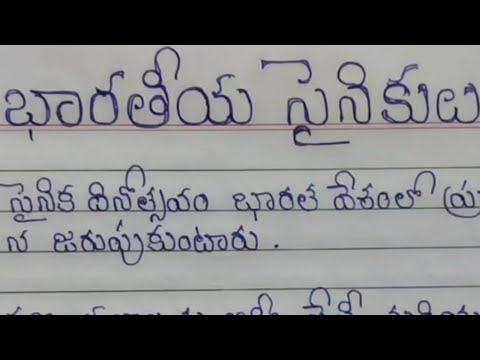 భారతీయ సైనికుల
సైనిక దినోత్సవం భారత దేశంలో ప్ర
న జరుపుకుంటారు.